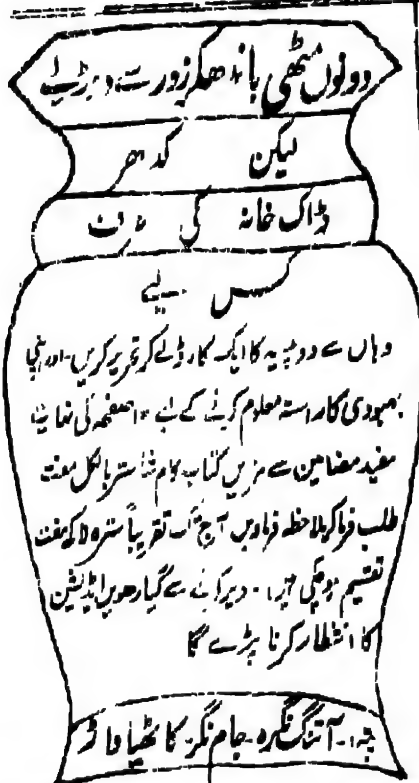 دونوں مٹھی باندھکر زور سے دوڑیئے
لیکن کدھر
ڈاک خانہ کی طرف
کس لیے
وہاں سے دو پیسہ کا ایک کارڈ لے کر تحریر کریں۔ اور اپنی
بہبودی کا راستہ معلوم کرنے کے لئے صفحہ کی نہایت
مفید مضامین سے مزین کتاب کام شاستر بالکل مفت
طلب فرما کر ملاحظہ فرماویں آج تک تقریباً سترہ لاکھ مفت
تقسیم ہو چکی ہیں۔ دیر کرنے سے گیارھویں ایڈیشن
کا انتظار کرنا پڑے گا
پتہ:۔ آتنگ نگرہ۔ جام نگر۔ کاٹھیاواڑ